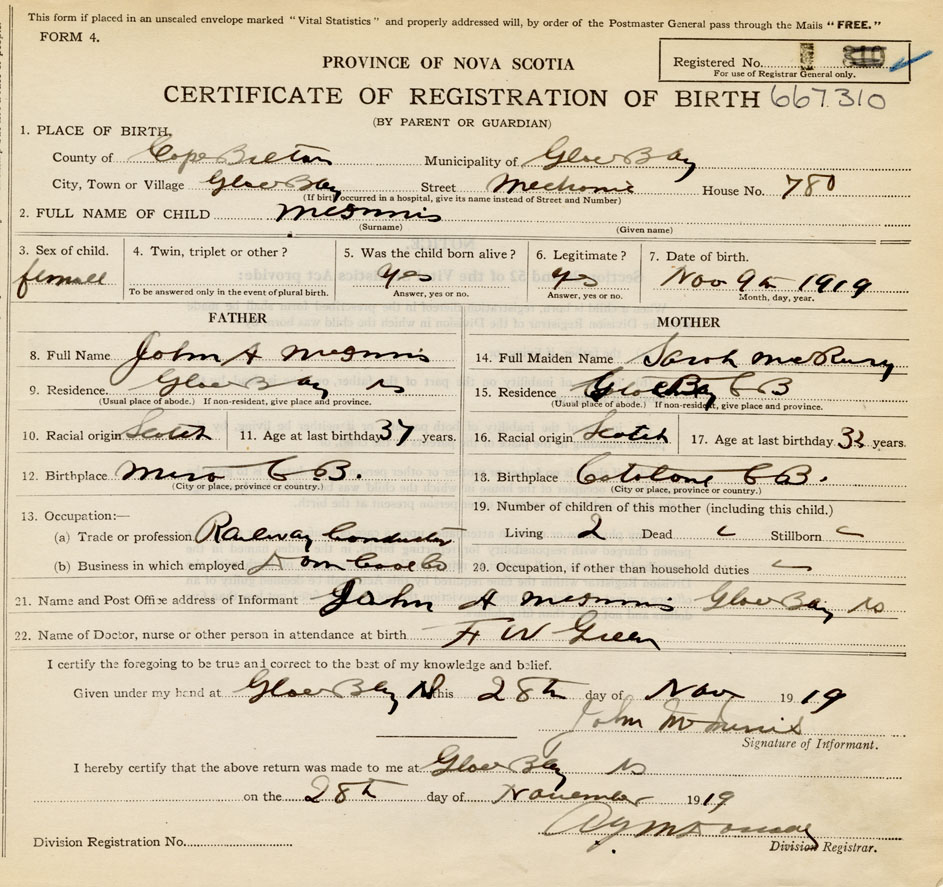 This form if placed in an unsealed envelope marked "Vital Statistics" and properly addressed will, by order of the Postmaster General pass through the Mails "FREE."
FORM 4.
Registered No. 310
For use of Registrar General only.
PROVINCE OF NOVA SCOTIA
CERTIFICATE OF REGISTRATION OF BIRTH 667310
(BY PARENT OR GUARDIAN)
1. PLACE OF BIRTH,
County of Cape Breton Municipality of Glace Bay
City, Town or Village Glace Bay Street Mechanic House No. 780
(If birth occurred in a hospital, give its name instead of Street and Number)
2. FULL NAME OF CHILD McInnis
(Surname) (Given name)
3. Sex of child. 4. Twin, triplet or other? 5. Was the child born alive? 6. Legitimate? 7. Date of birth.
female yes yes Nov 9th 1919
To be answered only in the event of plural birth. Answer, yes or no. Answer, yes or no. Month, day, year.
FATHER MOTHER
8. Full Name John A McInnis 14. Full Maiden Name Sarah McRury
9. Residence Glace Bay NS 15. Residence Glace Bay C B
(Usual place of abode.) If non-resident, give place and province. (Usual place of abode.) If non-resident, give place and province.
10. Racial origin Scotch 11. Age at last birthday 37 years. 16. Racial origin Scotch 17. Age at last birthday years.
12. Birthplace Mira C B. 18. Birthplace Catalone C B.
(City or place, province or country.) (City or place, province or country.)
13. Occupation:— 19. Number of children of this mother (including this child.)
(a) Trade or profession Railway Conductor Living 2 Dead Stillborn
(b) Business in which employed Dom Coal Co 20. Occupation, if other than household duties
21. Name and Post Office address of Informant John A McInnis Glace Bay NS
22. Name of Doctor, nurse or other person in attendance at birth Green
I certify the foregoing to be true and correct to the best of my knowledge and belief.
Given under my hand at Glace Bay NS this 28th day of Nov 1919
John McInnis
Signature of Informant.
I hereby certify that the above return was made to me at Glace Bay NS
on the 28th day of November 1919
Division Registration No. Division Registrar.